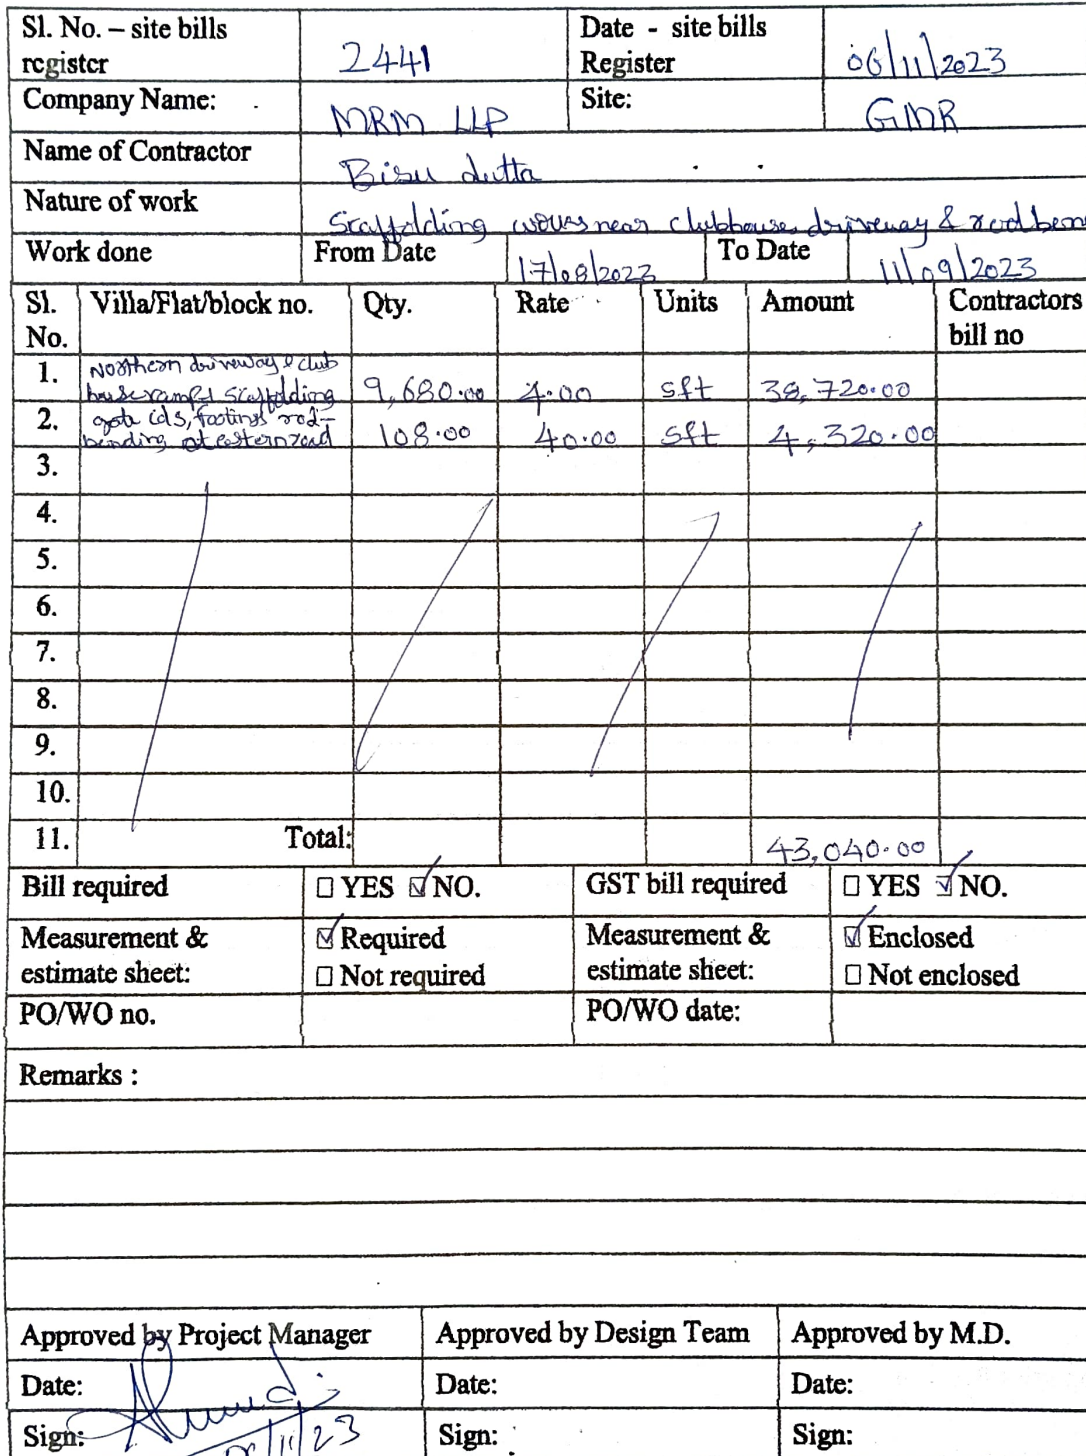 Sl. No. – site bills register 2441 Date - site bills Register 06/11/2023
Company Name: MRM LLP Site: GMR
Name of Contractor Bisu dutta
Nature of work Scaffolding works near clubhouse, driveway & rod bend
Work done From Date 17/08/2023 To Date 11/09/2023
Sl. No. Villa/Flat/block no. Qty. Rate Units Amount Contractors bill no
1. Northern driveway & club
house ramp scaffolding 9,680.00 4.00 sft 38,720.00
2. gate cols, footings rod-
bending at eastern road 108.00 40.00 sft 4,320.00
3.
4.
5.
6.
7.
8.
9.
10.
11. Total: 43,040.00
Bill required ☐ YES ☑ NO. GST bill required ☐ YES ☑ NO.
Measurement & estimate sheet: ☑ Required ☐ Not required Measurement & estimate sheet: ☑ Enclosed ☐ Not enclosed
PO/WO no. PO/WO date:
Remarks :
Approved by Project Manager Approved by Design Team Approved by M.D.
Date: Date: Date:
Sign: Sign: Sign: